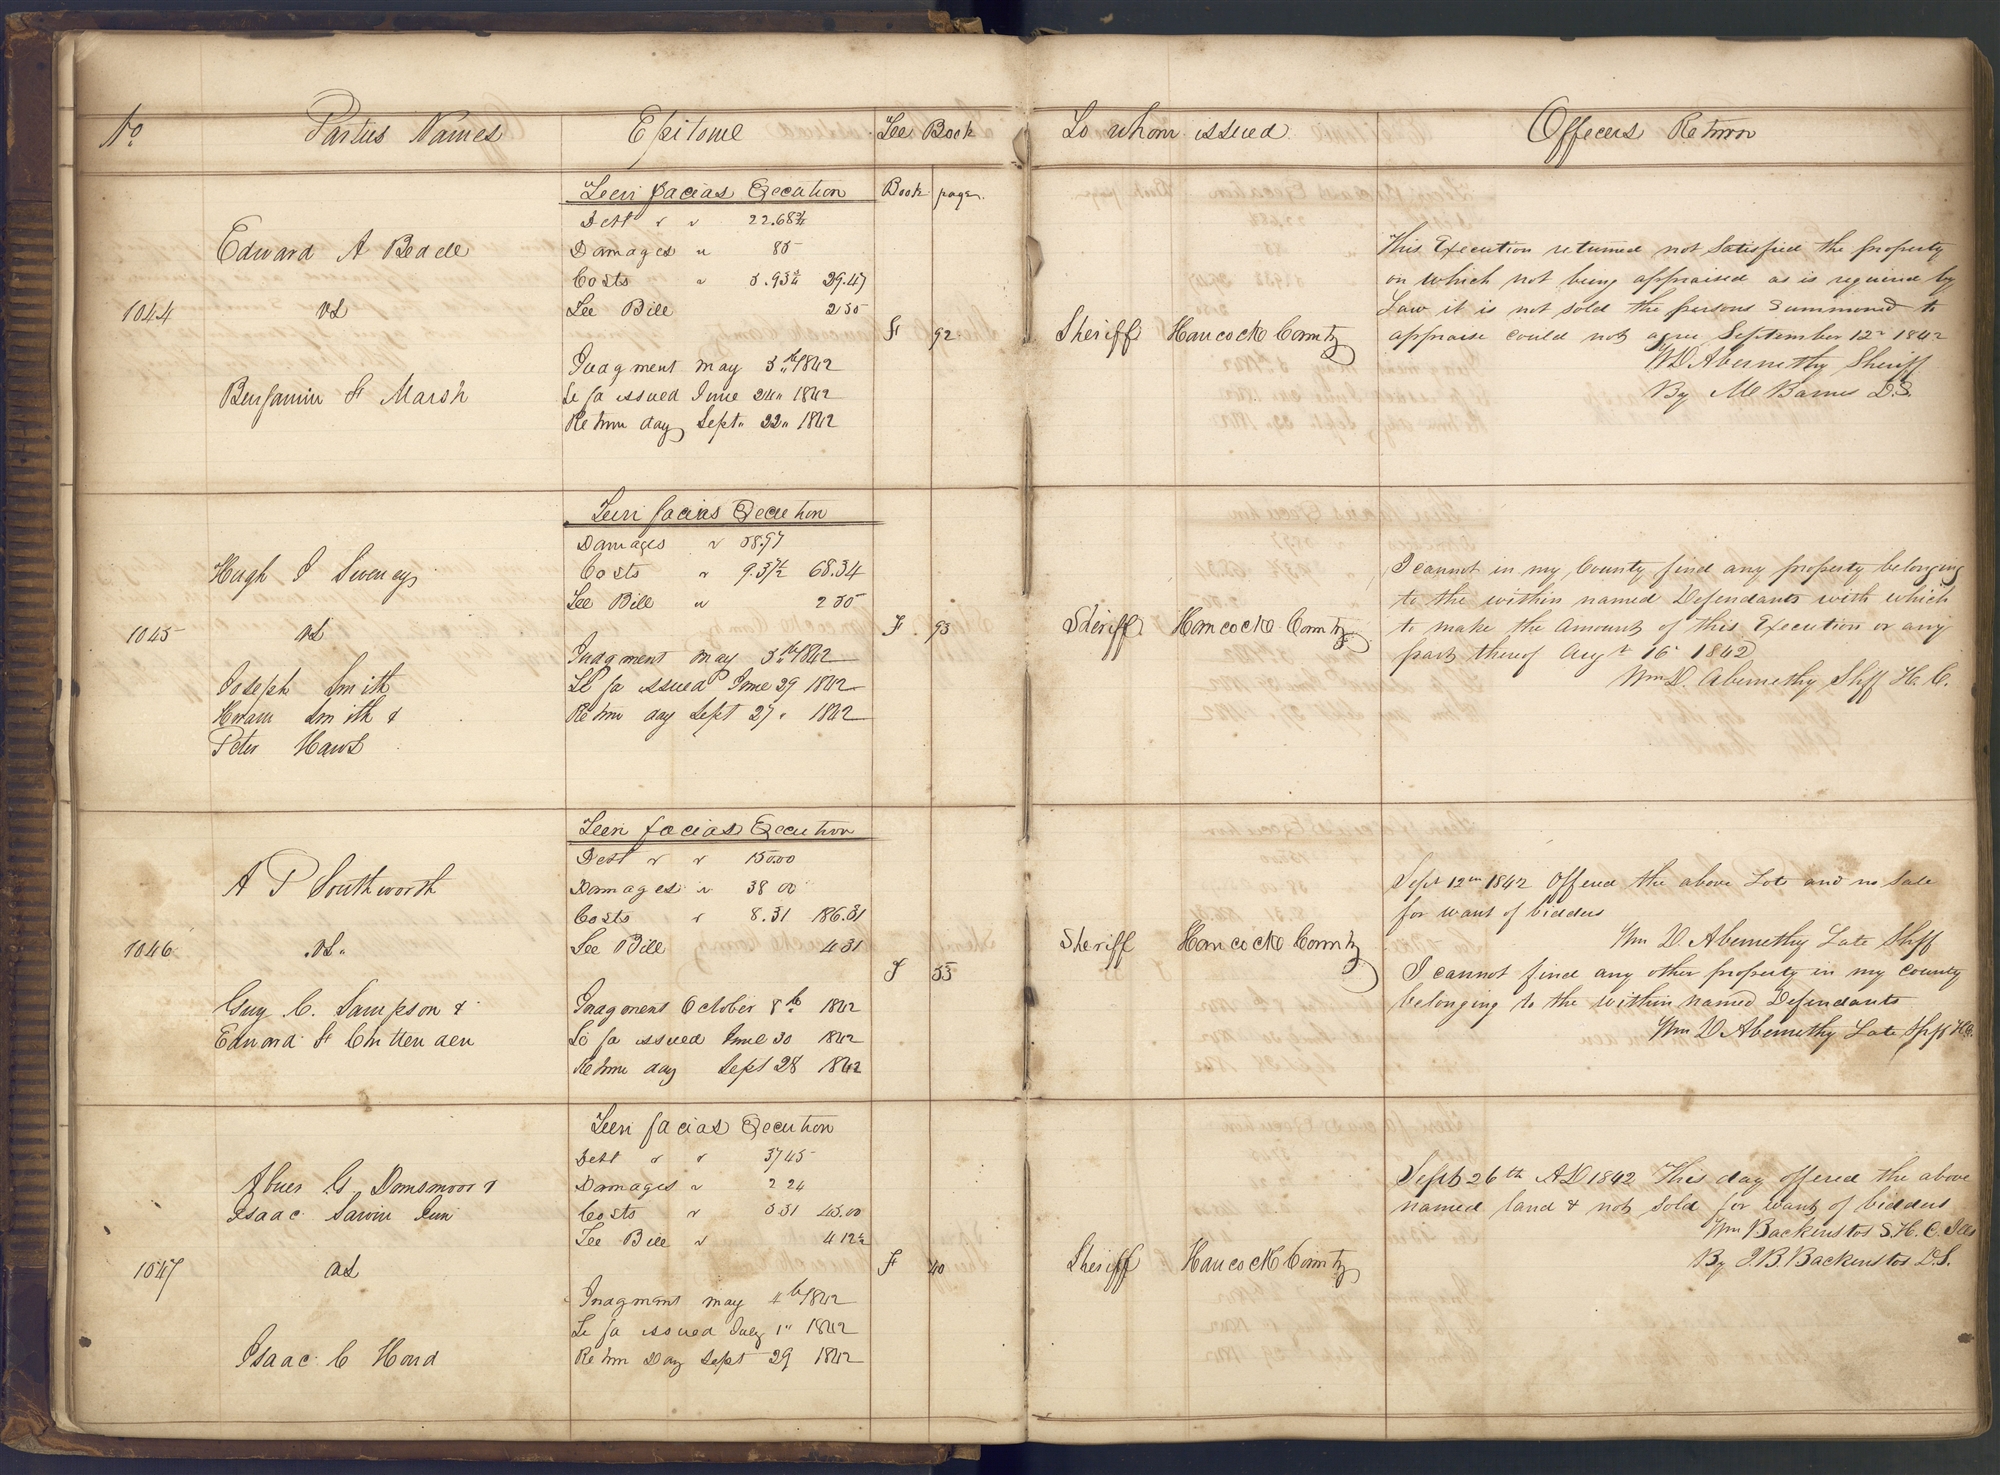 No. Parties Names Epitome Fee Book To whom issued Officers Return
Book page
Fieri facias Execution
Debt " " 22.68 3/4
Edward A Bedell
Damages " 85
Costs " 5.93 1/2 29.47
1044 vs
Fee Bill 2 50
F 92
Judgment may 5th 1842
Benjamin F Marsh
Fi fa issued June 24" 1842
Return day Sept" 22" 1842
Sheriff Hancock County
This Execution returned not Satisfied the property
on which not being appraised as is required by
Law it is not sold the persons Summoned to
appraise could not agree September 12" 1842
W D Abernethy Sheriff
By M Barnes D.S.
Fieri facias Execution
Damages " 58.97
Hugh I Sweney
Costs " 9.37 1/2 68.34
Fee Bill " 2 50
1045 vs
F. 93
Judgment may 5th 1842
Joseph Smith
Fi fa issued June 29 1842
Hiram Smith &
Return day Sept 27" 1842
Peter Haws
Sheriff Hancock County
I cannot in my County find any property belonging
to the within named Defendants with which
to make the Amount of this Execution or any
part thereof Augt 16" 1842
Wm D. Abernethy Shff H. C.
Fieri facias Execution
Debt " " 150.00
A P Southworth
Damages " 38 00
Costs " 8.31 186.31
1046 vs
Fee Bill 4 31
F 55
Guy C. Sampson &
Judgment October 8th 1842
Edward F Chittenden
Fi fa issued June 30 1842
Return day Sept 28 1842
Sheriff Hancock County
Sept 12th 1842 Offered the above Lots and no Sale
for want of bidders
Wm D. Abernethy Late Shff
I cannot find any other property in my County
belonging to the within named Defendants
Wm D Abernethy Late Shff H.C.
Fieri facias Execution
Debt " " 37 45
Abner G. Dunsmoor &
Damages " 2 24
Isaac Sawin Jun
Costs " 5 31 45.00
Fee Bill " 4 12 1/2
1047 vs
F 40
Judgment may 4th 1842
Fi fa issued July 1" 1842
Isaac C Hond
Return Day Sept 29 1842
Sheriff Hancock County
Sept 26th AD 1842 This day offered the above
named land & not Sold for want of bidders
Wm Backenstos S. H. C. Ills
By J. B. Backenstos D.S.